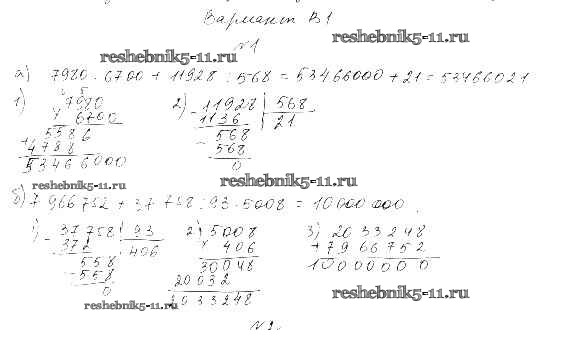 Вариант В1
reshebnik5-11.ru
№1
reshebnik5-11.ru
а) 7980 · 6700 + 11928 : 568 = 53466000 + 21 = 53466021
1) 7980
× 6700
5586
+ 4788
53466000
2) - 11928 | 568
1136 | 21
- 568
568
0
reshebnik5-11.ru
reshebnik5-11.ru
б) 7966752 + 37758 : 93 · 5008 = 10000000
1) - 37758 | 93
372 | 406
- 558
558
0
2) 5008
× 406
30048
20032
2033248
3) 2033248
+ 7966752
10000000
reshebnik5-11.ru
reshebnik5-11.ru
№2.